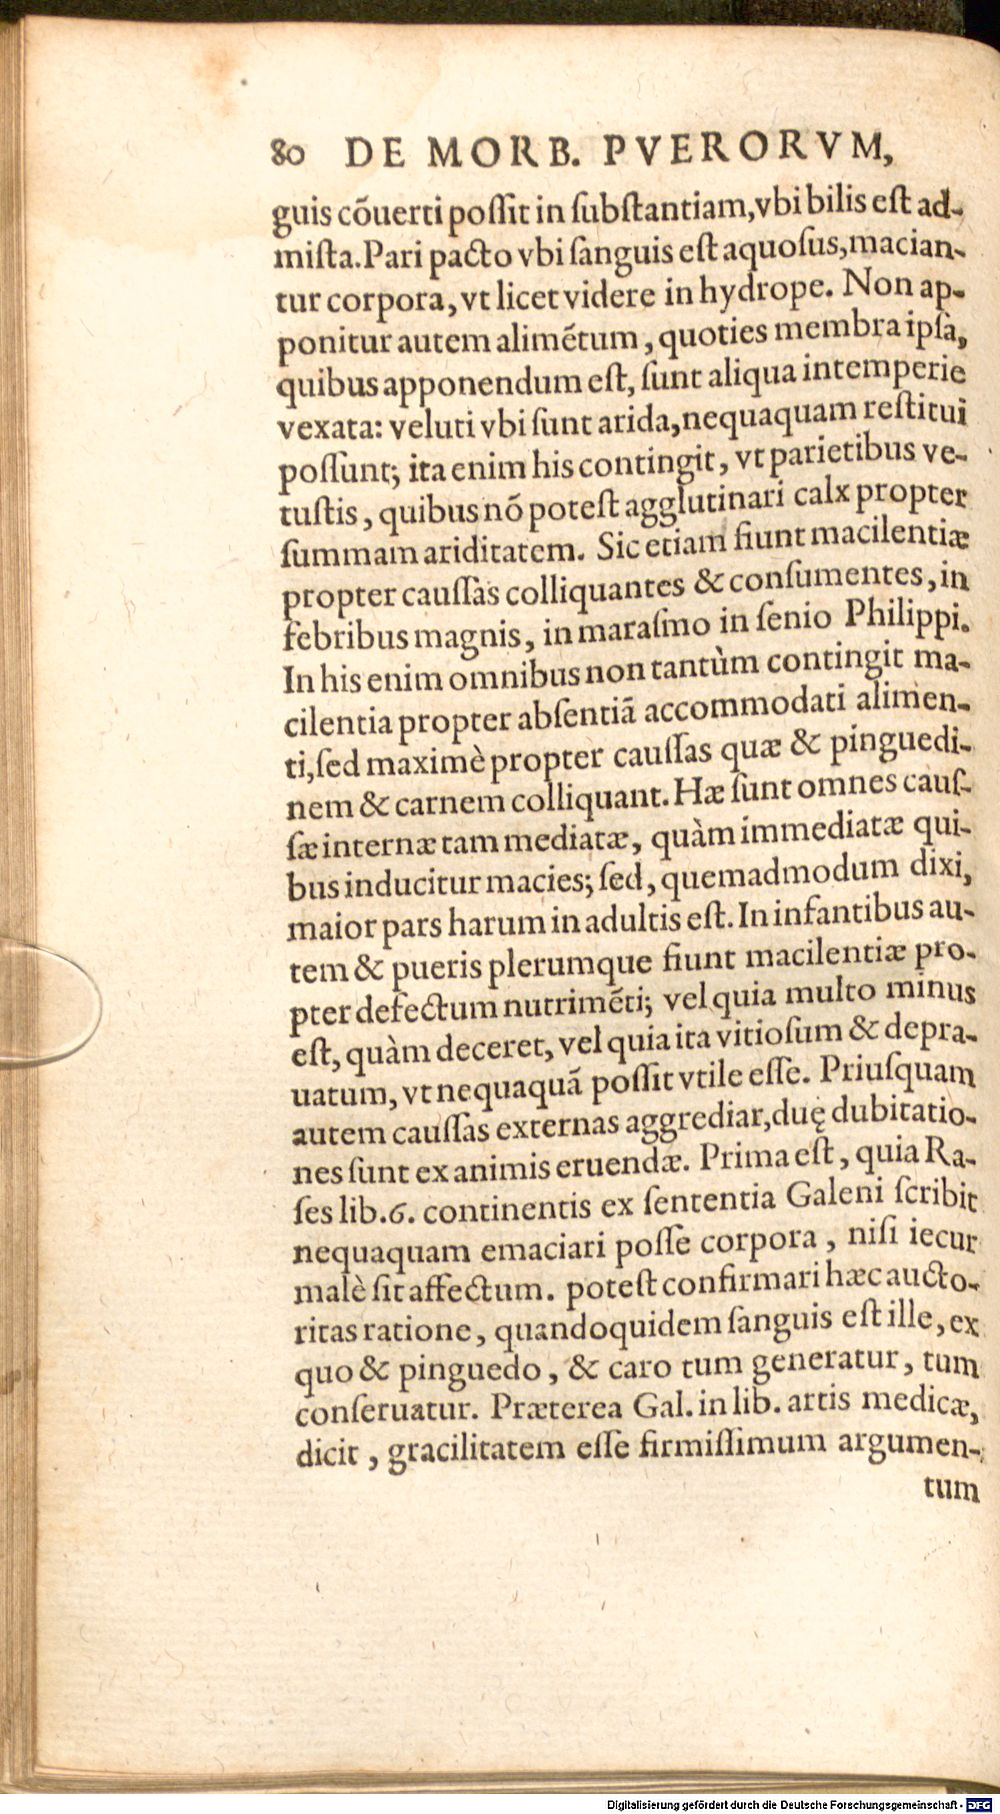 80 DE MORB. PVERORVM,
guis cõuerti poſſit in ſubſtantiam,vbi bilis eſt ad-
miſta.Pari pacto vbi ſanguis eſt aquoſus,macian-
tur corpora, vt licet videre in hydrope. Non ap-
ponitur autem alimẽtum , quoties membra ipſa,
quibus apponendum eſt, ſunt aliqua intemperie
vexata: veluti vbi ſunt arida,nequaquam reſtitui
poſſunt; ita enim his contingit , vt parietibus ve-
tuſtis , quibus nõ poteſt agglutinari calx propter
ſummam ariditatem. Sic etiam fiunt macilentiæ
propter cauſſas colliquantes & conſumentes, in
febribus magnis, in maraſmo in ſenio Philippi.
In his enim omnibus non tantùm contingit ma-
cilentia propter abſentiã accommodati alimen-
ti,ſed maximè propter cauſſas quæ & pinguedi-
nem & carnem colliquant. Hæ ſunt omnes cauſ-
ſæ internæ tam mediatæ, quàm immediatæ qui-
bus inducitur macies; ſed, quemadmodum dixi,
maior pars harum in adultis eſt. In infantibus au-
tem & pueris plerumque fiunt macilentiæ pro-
pter defectum nutrimẽti; vel quia multo minus
eſt, quàm deceret, vel quia ita vitioſum & depra-
uatum, vt nequaquã poſſit vtile eſſe. Priuſquam
autem cauſſas externas aggrediar,duę dubitatio-
nes ſunt ex animis eruendæ. Prima eſt , quia Ra-
ſes lib.6. continentis ex ſententia Galeni ſcribit
nequaquam emaciari poſſe corpora , niſi iecur
malè ſit affectum. poteſt confirmari hæc aucto-
ritas ratione, quandoquidem ſanguis eſt ille, ex
quo & pinguedo , & caro tum generatur , tum
conſeruatur. Præterea Gal. in lib. artis medicæ,
dicit , gracilitatem eſſe firmiſſimum argumen-
tum
Digitalisierung gefördert durch die Deutsche Forschungsgemeinschaft - DFG